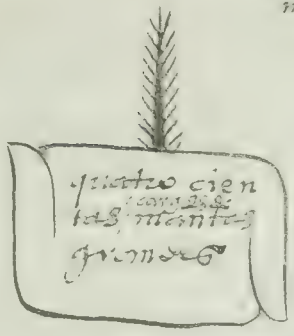 quatro cien
cargas de
tas mantas
grandes